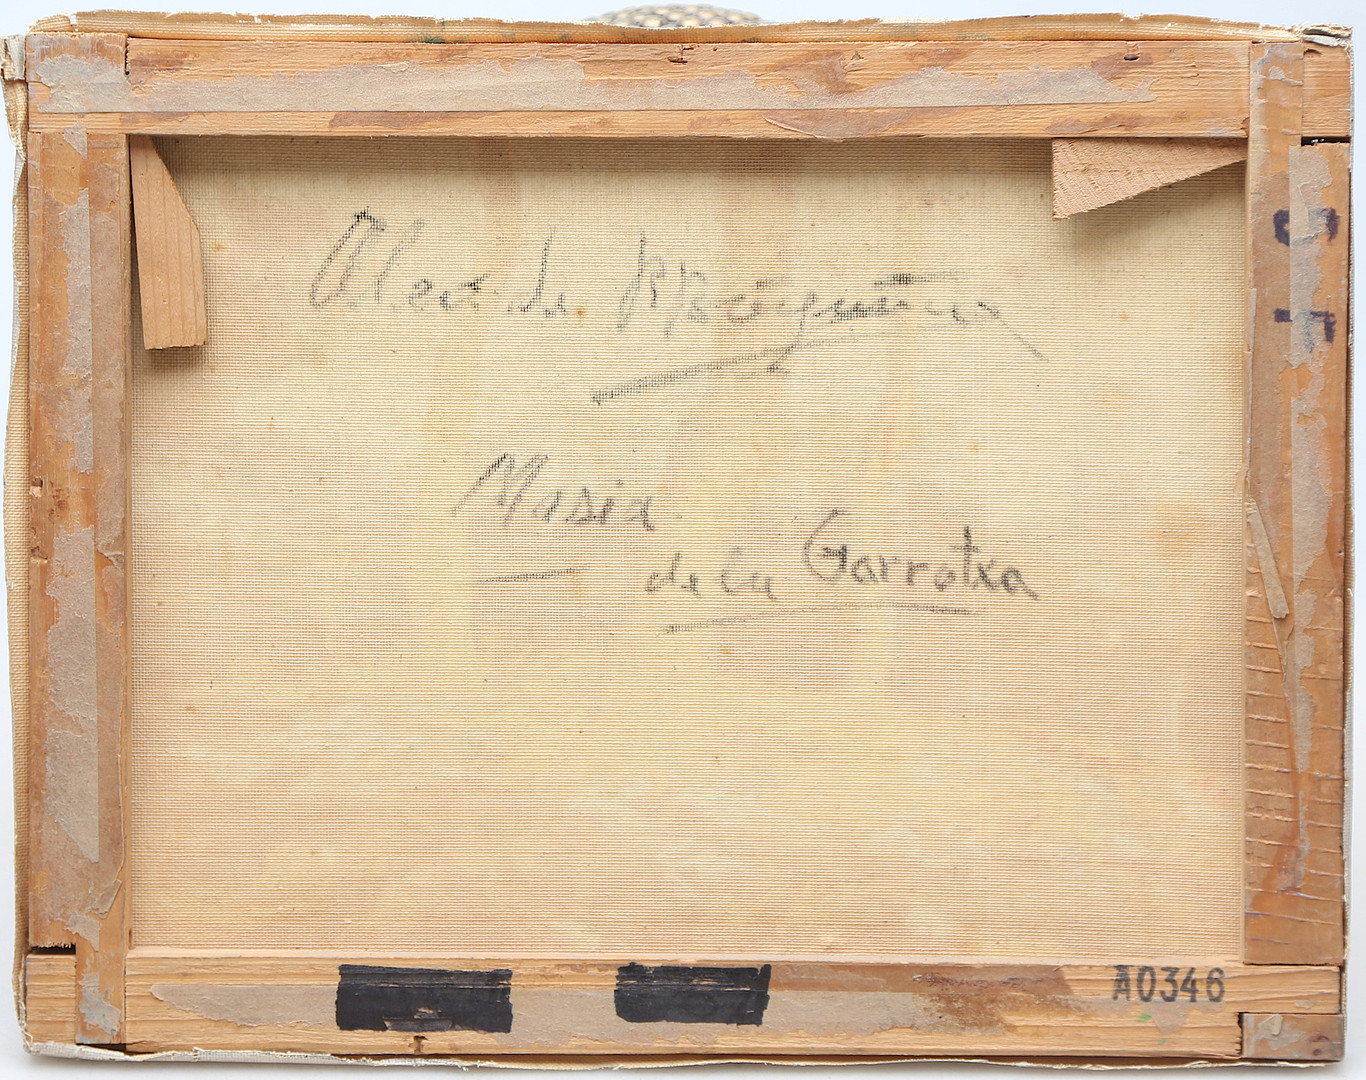 Oleo de
Masia
de la Garrotxa
A0346